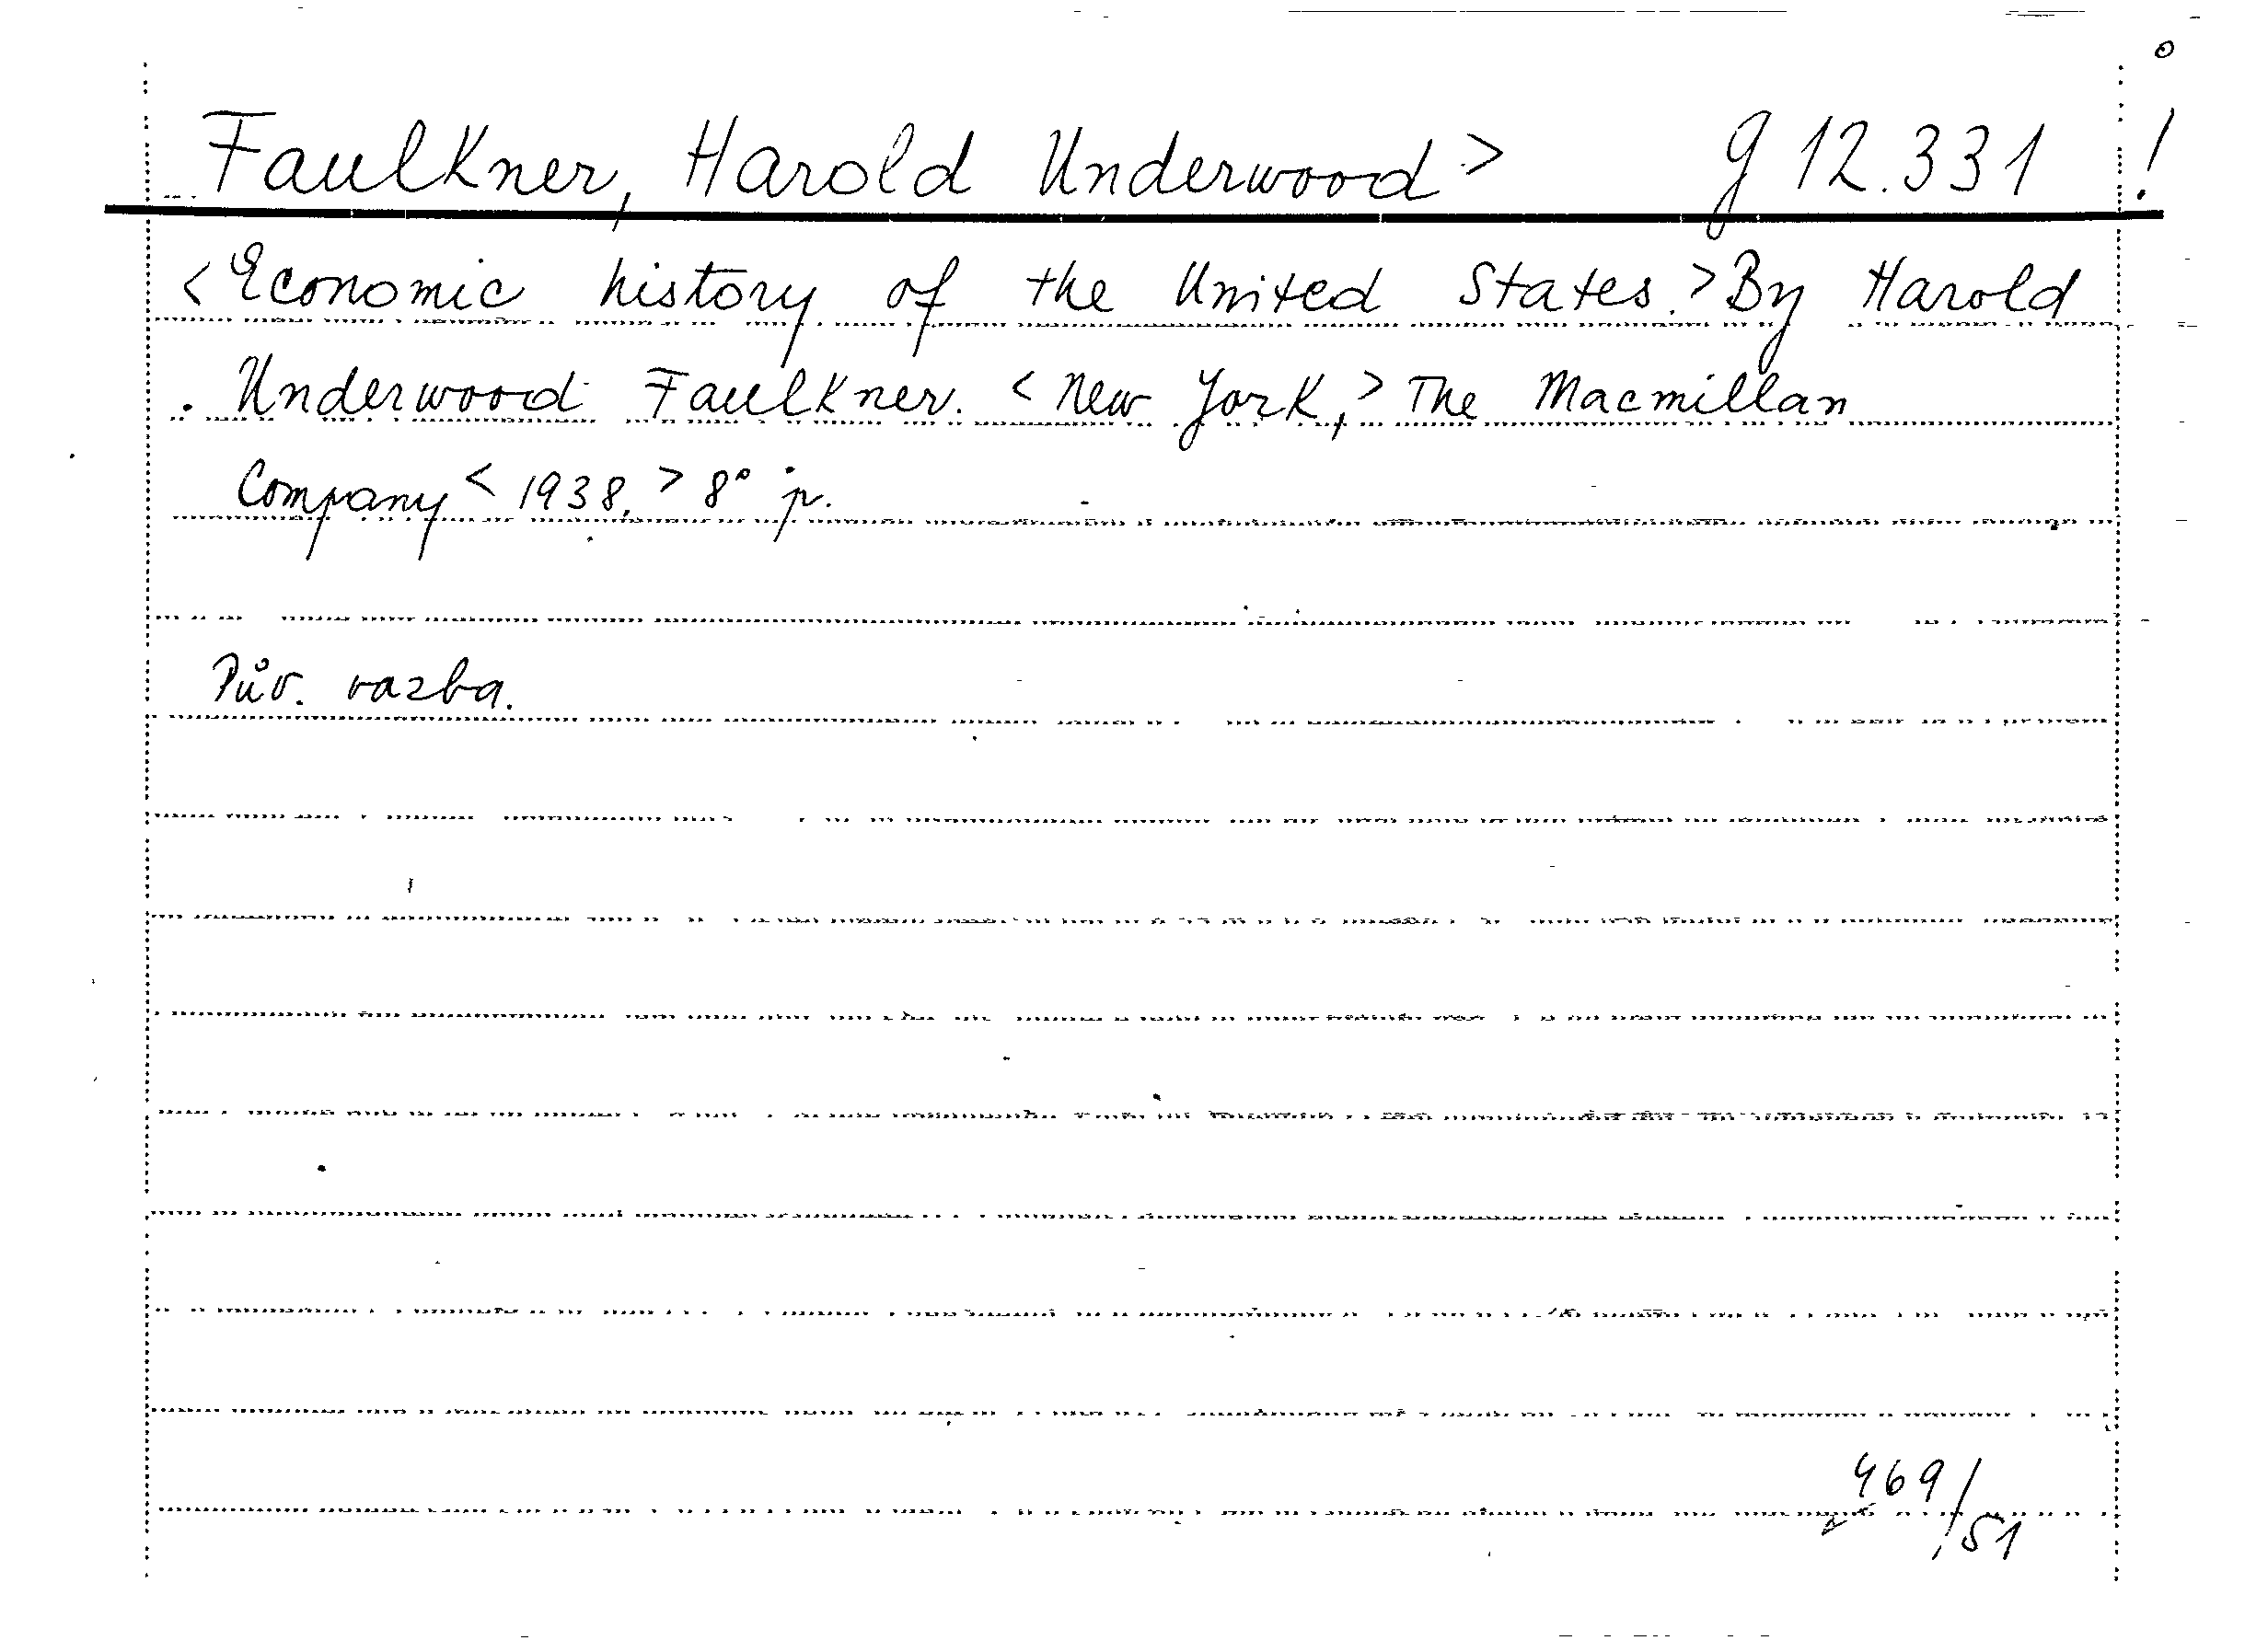 Faulkner, Harold Underwood> g 12.331 !
<Economic history of the United States.> By Harold
Underwood Faulkner. <New York,> The Macmillan
Company <1938.> 8° p.
Pův. vazba.
469/51